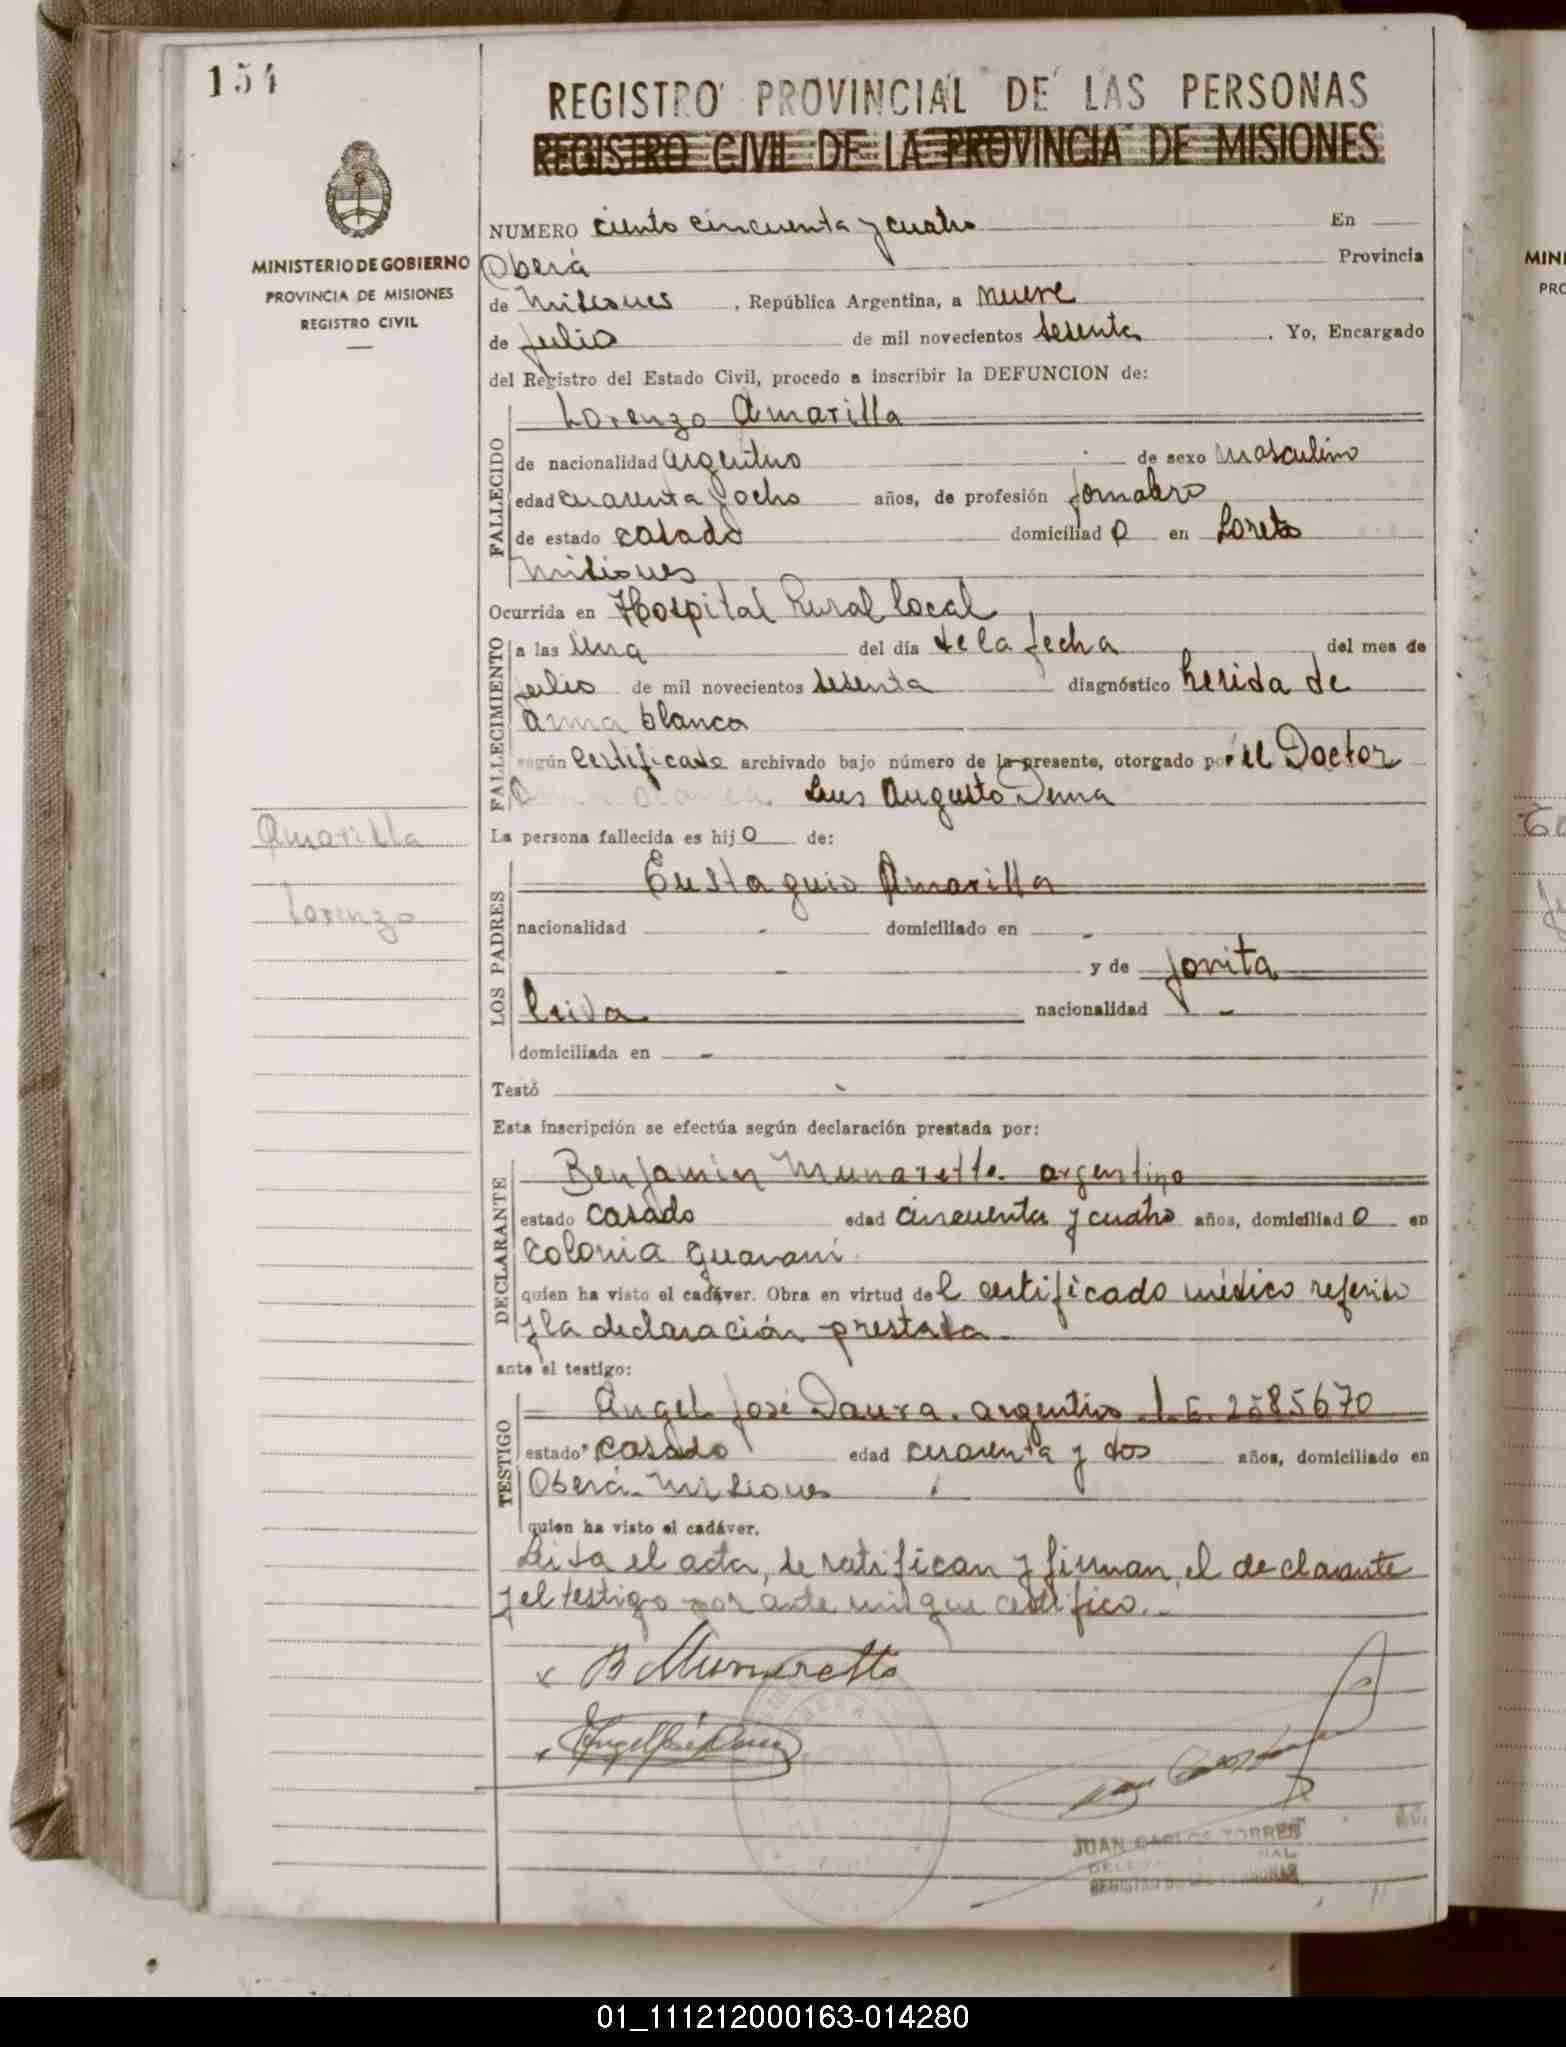 154
REGISTRO PROVINCIAL DE LAS PERSONAS
REGISTRO CIVIL DE LA PROVINCIA DE MISIONES
MINISTERIO DE GOBIERNO
PROVINCIA DE MISIONES
REGISTRO CIVIL
NUMERO ciento cincuenta y cuatro En
Oberá Provincia
de Misiones, República Argentina, a nueve
de julio de mil novecientos sesenta. Yo, Encargado
del Registro del Estado Civil, procedo a inscribir la DEFUNCION de:
FALLECIDO
Lorenzo Amarilla
de nacionalidad argentino de sexo masculino
edad cuarenta y ocho años, de profesión jornalero
de estado casado domiciliad o en Loreto
Misiones
Ocurrida en Hospital Rural local
FALLECIMIENTO
a las una del día de la fecha del mes de
julio de mil novecientos sesenta diagnóstico herida de
arma blanca
según certificado archivado bajo número de la presente, otorgado por el Doctor
Luis Augusto
La persona fallecida es hij o de:
Amarilla
Lorenzo
LOS PADRES
Eustaquio Amarilla
nacionalidad - domiciliado en -
- y de Jovita
nacionalidad -
domiciliada en -
Testó -
Esta inscripción se efectúa según declaración prestada por:
DECLARANTE
Benjamín Munaretto. argentino
estado casado edad cincuenta y cuatro años, domiciliad o en
Colonia Guaraní
quien ha visto el cadáver. Obra en virtud del certificado médico referido
y la declaración prestada.
ante el testigo:
TESTIGO
Angel José Daura. argentino. L.E. 2585670
estado casado edad cuarenta y dos años, domiciliado en
Oberá. Misiones
quien ha visto el cadáver.
Leida el acta, se ratifican y firman, el declarante
y el testigo por ante mí que certifico.-
x B Munaretto
x Angel José Daura
JUAN CARLOS TORRES
REGISTRO DE LAS PERSONAS
MINI
PRO
01_111212000163-014280